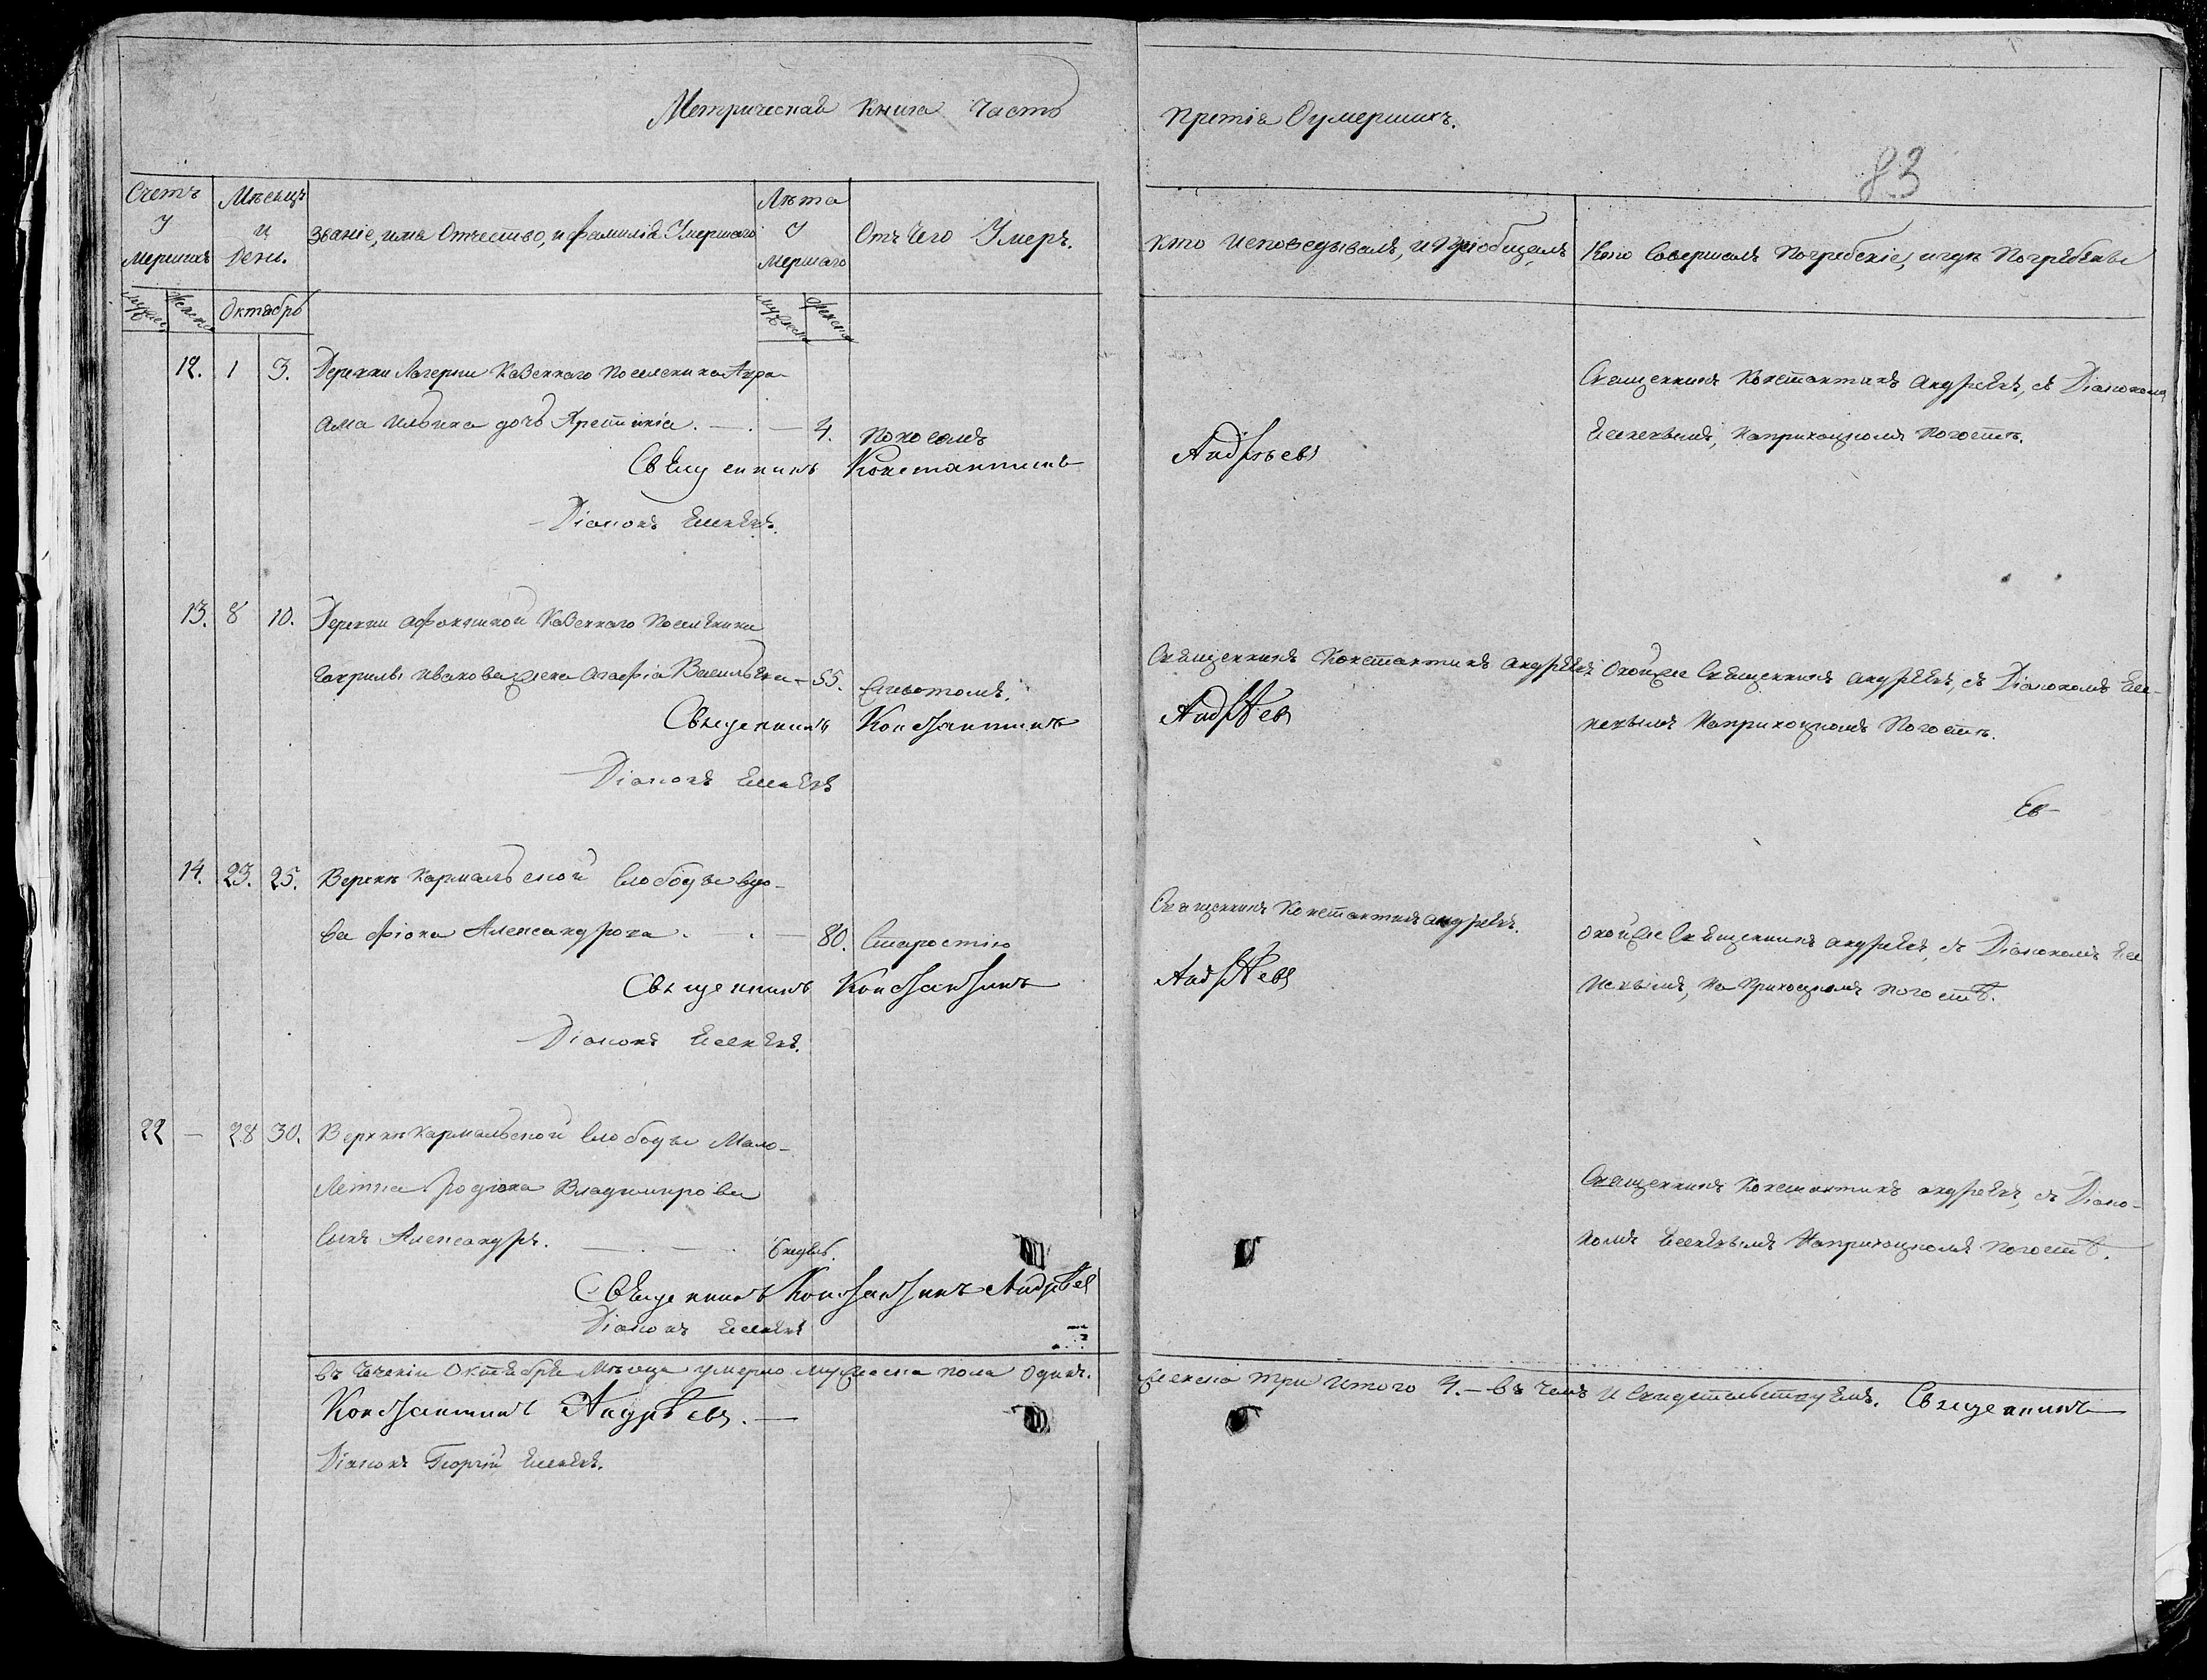 Метрическая книга часть
третія Оумершихъ.
83
Счетъ
у
мершихъ
Мѣсяцъ
и
день.
Званіе, имя Отчество, и фамилія Умершаго
Лѣта
У
мершаго
Отъ чего Умеръ.
кто исповедывалъ, и пріобщалъ
Кто Совершалъ Погребеніе, и гдѣ Погребены
мужеск
женска
Октябрь
мужеска
женска
12. 1 3. Деревни Лагерки Казеннаго Поселенина Авра-
ама Ильина дочь Хрестинія. — . — 4. поносомъ
Священникъ Константинъ Андрѣевъ
Діаконъ Есеневъ.
Священникъ Константинъ Андреевъ, съ Діакономъ
Есеневымъ, наприходскомъ погостѣ.
13. 8 10. Деревни Афонкиной Казеннаго Поселенина
Гаврилы Иванова жена Агафія Васильева — 55. Животомъ.
Священникъ Константинъ Андрѣевъ
Діаконъ Есеневъ
Священникъ Константинъ Андреевъ
Оной же Священникъ Андреевъ, съ Діакономъ Есе-
невымъ наприходскомъ Погостѣ.
Ев-
14. 23. 25. Верхнѣ Кармальской Слободы вдо-
ва Фіона Александрова . — . — 80. Старостію
Священникъ Константинъ Андрѣевъ
Діаконъ Есеневъ.
Священникъ Константинъ Андреевъ.
Оной же Священникъ Андреевъ, съ Діакономъ Есе
невымъ, на Приходскомъ погостѣ.
22 — 28 30. Верхнѣ Кармальской Слободы Мало-
летка Родіона Владимирова
Сынъ Александръ. — . — . 6 недѣль.
Священникъ Константинъ Андрѣев
Діаконъ Есеневъ
Священникъ Константинъ Андреевъ, съ Діако-
номъ Есеневымъ наприходскомъ погостѣ.
въ теченіи Октября Мѣсяца умерло мужеска пола одинъ. женска три итого 4. — въ чемъ и Свидетельствуемъ. Священникъ
Константинъ Андрѣевъ. —
Діаконъ Георгій Есеневъ.